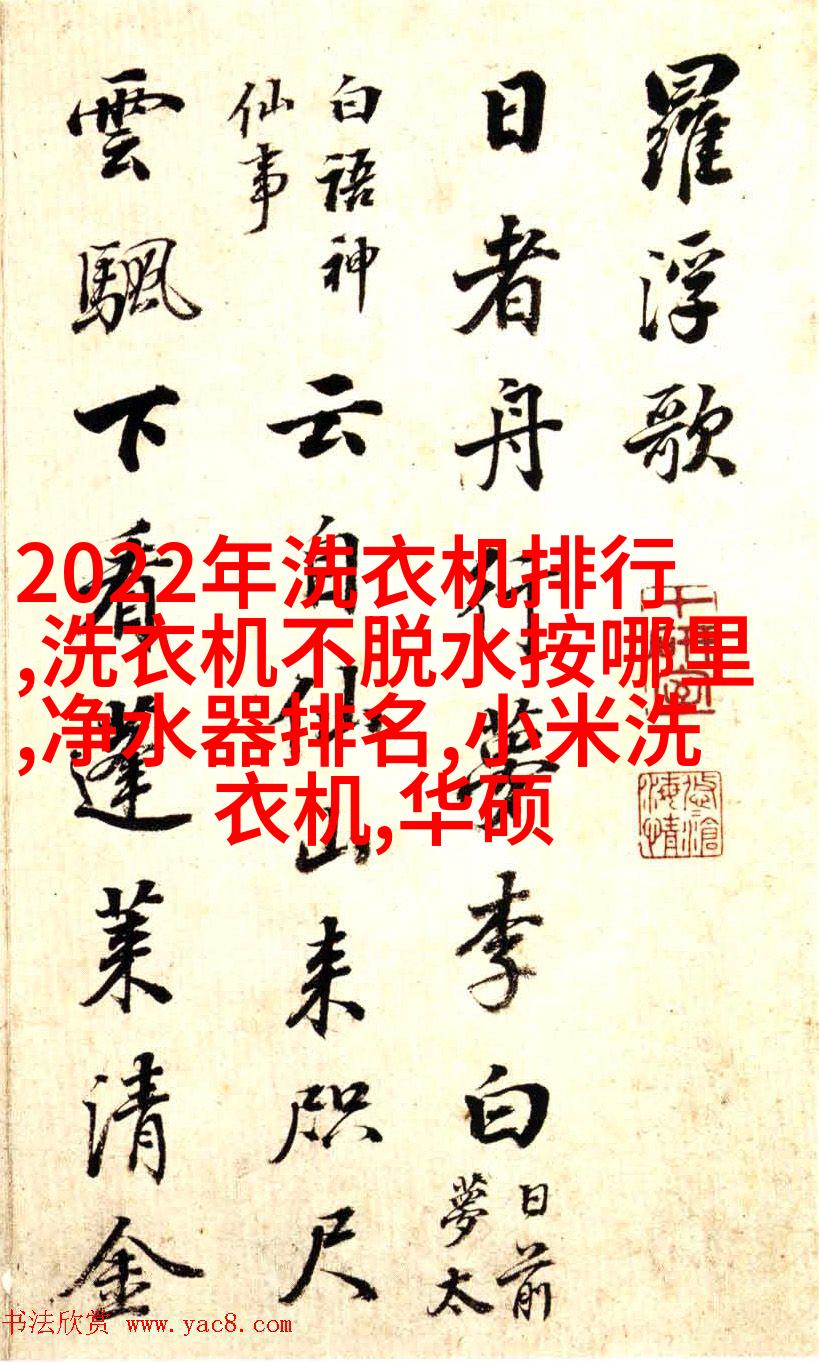 羅浮歌
日者舟行夢李白日前夢太
白語神仙事云自仙山来咫尺
雲飄下看蓬莱清金
2022年洗衣机排行
,洗衣机不脱水按哪里
,净水器排名,小米洗
衣机,华硕
书法欣赏 www.yac8.com